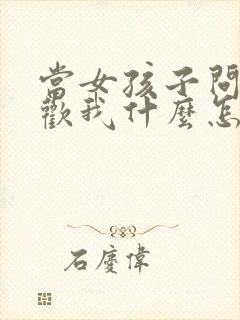 當女孩子問
歡我什麼怎
石慶偉